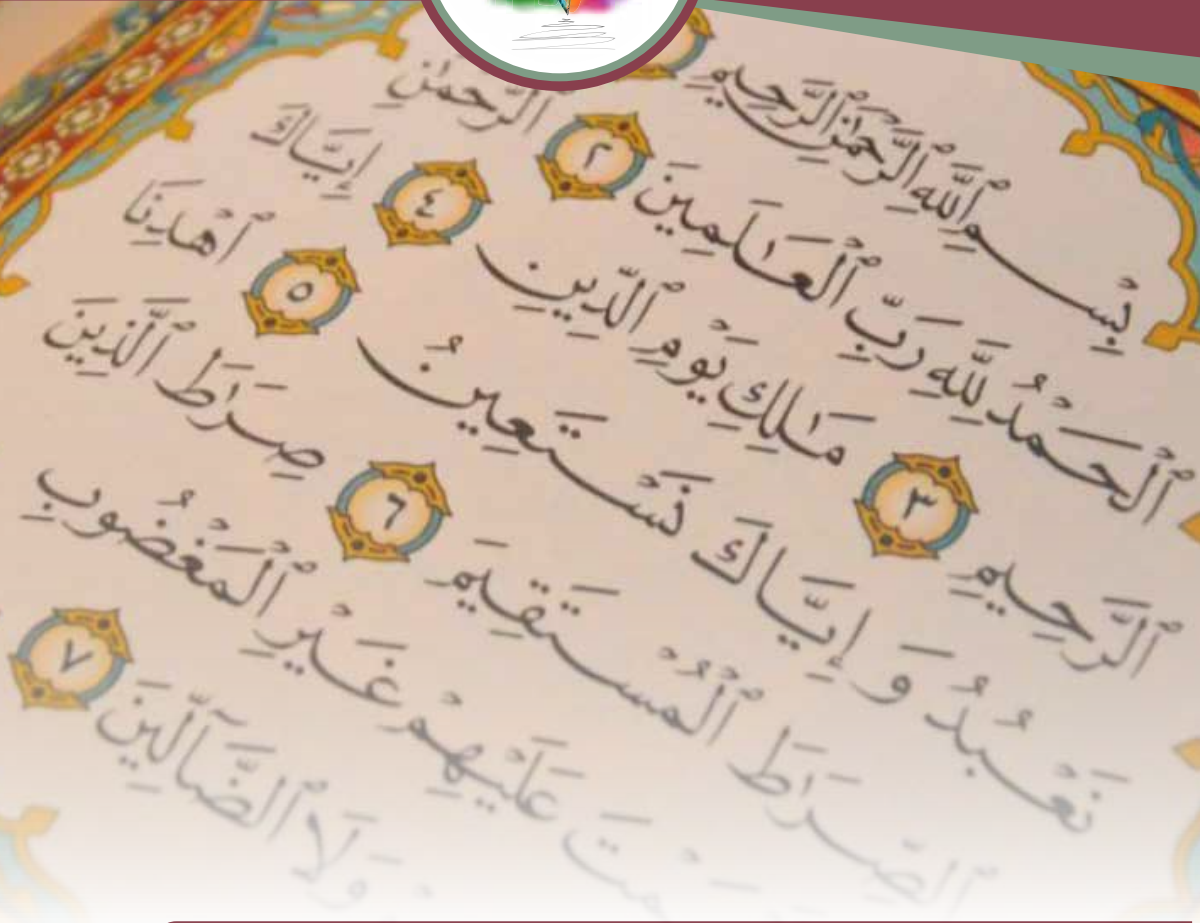 بِسْمِ ٱللَّهِ ٱلرَّحْمَٰنِ ٱلرَّحِيمِ
ٱلْحَمْدُ لِلَّهِ رَبِّ ٱلْعَٰلَمِينَ ٢ ٱلرَّحْمَٰنِ
ٱلرَّحِيمِ ٣ مَٰلِكِ يَوْمِ ٱلدِّينِ ٤ إِيَّاكَ
نَعْبُدُ وَإِيَّاكَ نَسْتَعِينُ ٥ ٱهْدِنَا
ٱلصِّرَٰطَ ٱلْمُسْتَقِيمَ ٦ صِرَٰطَ ٱلَّذِينَ
عَلَيْهِمْ غَيْرِ ٱلْمَغْضُوبِ
وَلَا ٱلضَّآلِّينَ ٧